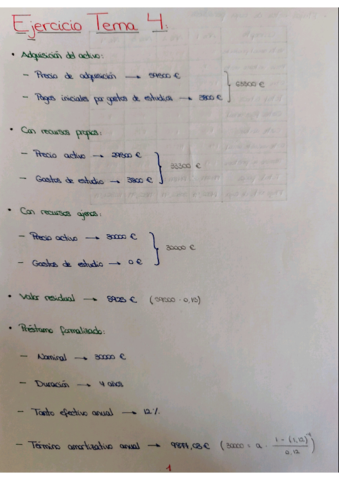 Ejercicio Tema 4:
• Adquisición del activo:
– Precio de adquisición → 59500 €
– Pagos iniciales por gastos de estudios → 3800 €
63300 €
• Con recursos propios:
– Precio activo → 29500 €
– Gastos de estudio → 3800 €
33300 €
• Con recursos ajenos:
– Precio activo → 30000 €
– Gastos de estudio → 0 €
30000 €
• Valor residual → 8925 € (59500 · 0,15)
• Préstamo formalizado:
– Nominal → 30000 €
– Duración → 4 años
– Tanto efectivo anual → 12 %
– Término amortizativo anual → 9877,03 € (30000 = a ·
1